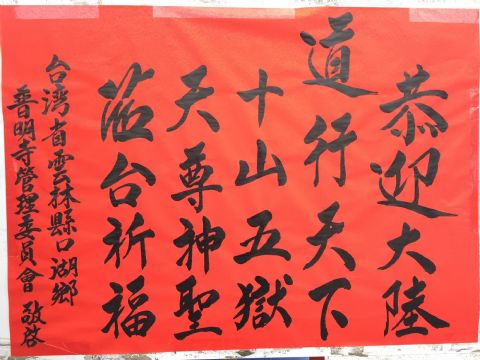 恭迎大陸
道行天下
十山五獄
天尊神聖
蒞台祈福
台湾省雲林縣口湖鄉
普明寺管理委員會 敬啓